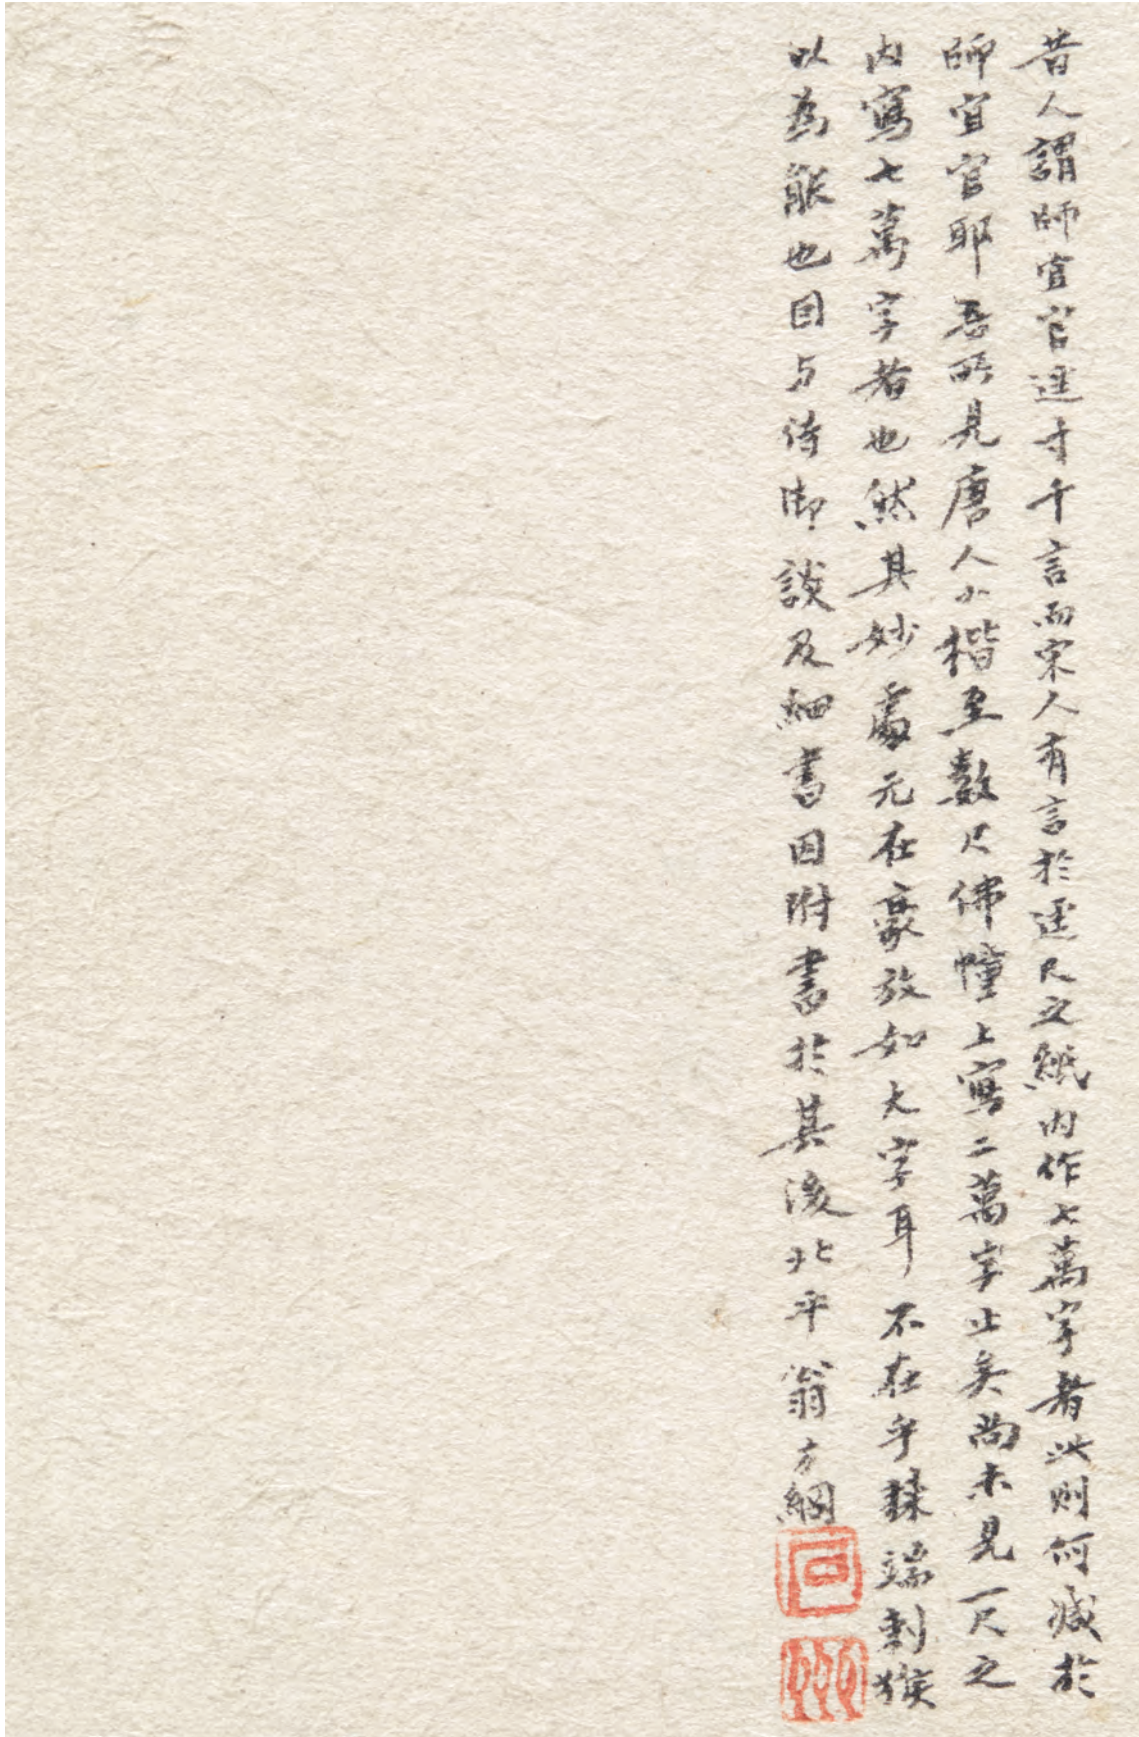 昔人謂師宜官逕寸千言而宋人有言於逕尺之紙内作七萬字者此則何减於
師宜官耶吾所見唐人小楷至數尺佛幢上寫二萬字止矣尚未見一尺之
内寫七萬字者也然其妙處元在豪放如大字耳不在乎棘端刺猴
以為能也因与侍御談及細書因附書於其後北平翁方綱